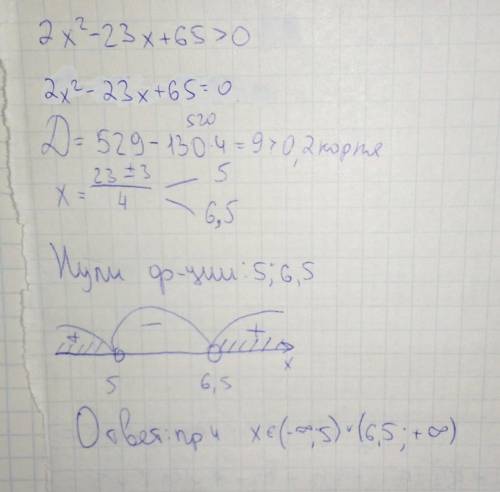 2x²-23x+65>0
2x²-23x+65=0
520
D=529-130·4=9>0, 2 корня
x = (23±3)/4 5
6,5
Нули ф-ции: 5; 6,5
+ − +
5 6,5 x
Ответ: при x∈(-∞;5)∪(6,5;+∞)